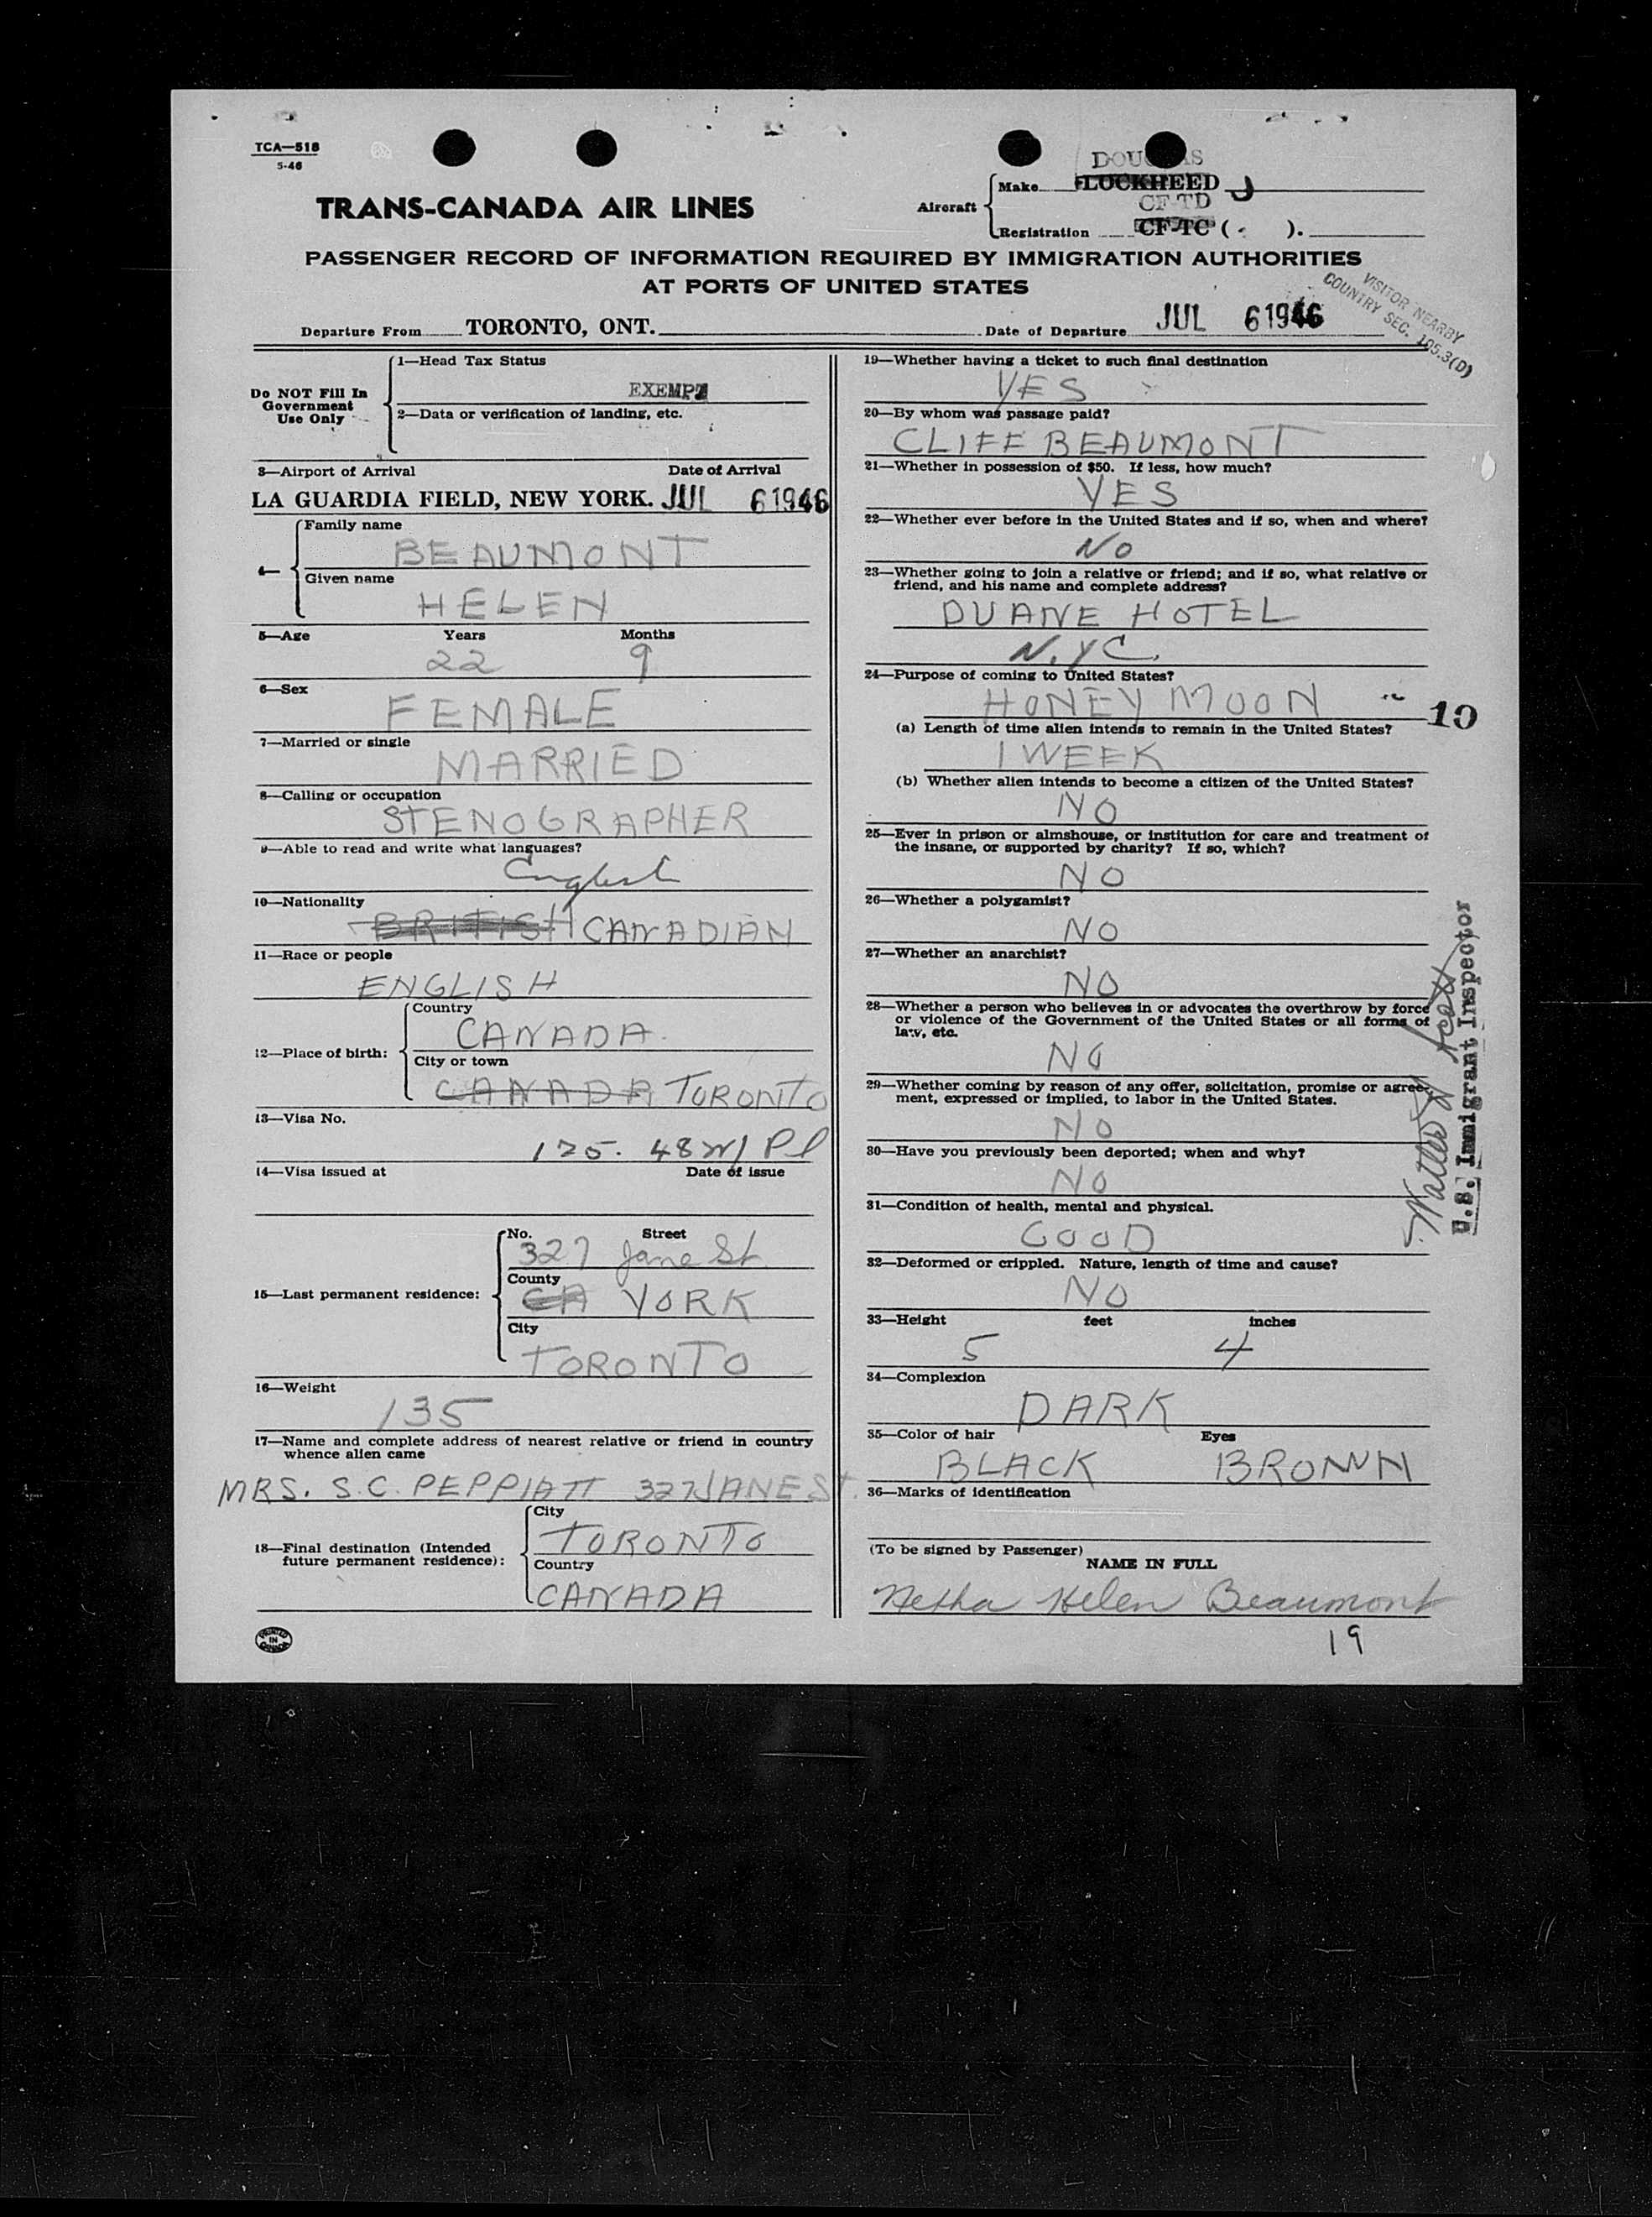 TCA—518
5-46
DOUGLAS
TRANS-CANADA AIR LINES
Aircraft
Make LOCKHEED J
CF-TD
Registration CF-TC ( ).
PASSENGER RECORD OF INFORMATION REQUIRED BY IMMIGRATION AUTHORITIES
AT PORTS OF UNITED STATES
VISITOR NEARBY
COUNTRY SEC. 105.3(D)
Departure From TORONTO, ONT. Date of Departure JUL 6 1946
Do NOT Fill In
Government
Use Only
1—Head Tax Status
EXEMPT
2—Data or verification of landing, etc.
3—Airport of Arrival Date of Arrival
LA GUARDIA FIELD, NEW YORK. JUL 6 1946
4—
Family name
BEAUMONT
Given name
HELEN
5—Age Years Months
22 9
6—Sex
FEMALE
7—Married or single
MARRIED
8—Calling or occupation
STENOGRAPHER
9—Able to read and write what languages?
English
10—Nationality
BRITISH CANADIAN
11—Race or people
ENGLISH
12—Place of birth:
Country
CANADA
City or town
CANADA TORONTO
13—Visa No.
14—Visa issued at Date of issue
15—Last permanent residence:
No. Street
327 Jane St.
County
CA YORK
City
TORONTO
16—Weight
135
17—Name and complete address of nearest relative or friend in country
whence alien came
MRS. S.C. PEPPIATT 327 JANE ST.
18—Final destination (Intended
future permanent residence):
City
TORONTO
Country
CANADA
PRINTED
IN
CANADA
19—Whether having a ticket to such final destination
YES
20—By whom was passage paid?
CLIFF BEAUMONT
21—Whether in possession of $50. If less, how much?
YES
22—Whether ever before in the United States and if so, when and where?
No
23—Whether going to join a relative or friend; and if so, what relative or
friend, and his name and complete address?
DUANE HOTEL
N.Y.C.
24—Purpose of coming to United States?
HONEY MOON
10
(a) Length of time alien intends to remain in the United States?
1 WEEK
(b) Whether alien intends to become a citizen of the United States?
NO
25—Ever in prison or almshouse, or institution for care and treatment of
the insane, or supported by charity? If so, which?
NO
26—Whether a polygamist?
NO
27—Whether an anarchist?
NO
28—Whether a person who believes in or advocates the overthrow by force
or violence of the Government of the United States or all forms of
law, etc.
NO
29—Whether coming by reason of any offer, solicitation, promise or agree-
ment, expressed or implied, to labor in the United States.
NO
30—Have you previously been deported; when and why?
NO
31—Condition of health, mental and physical.
GOOD
32—Deformed or crippled. Nature, length of time and cause?
NO
33—Height feet inches
5 4
34—Complexion
DARK
35—Color of hair Eyes
BLACK BROWN
36—Marks of identification
(To be signed by Passenger)
NAME IN FULL
Netha Helen Beaumont
19
U.S. Immigrant Inspector